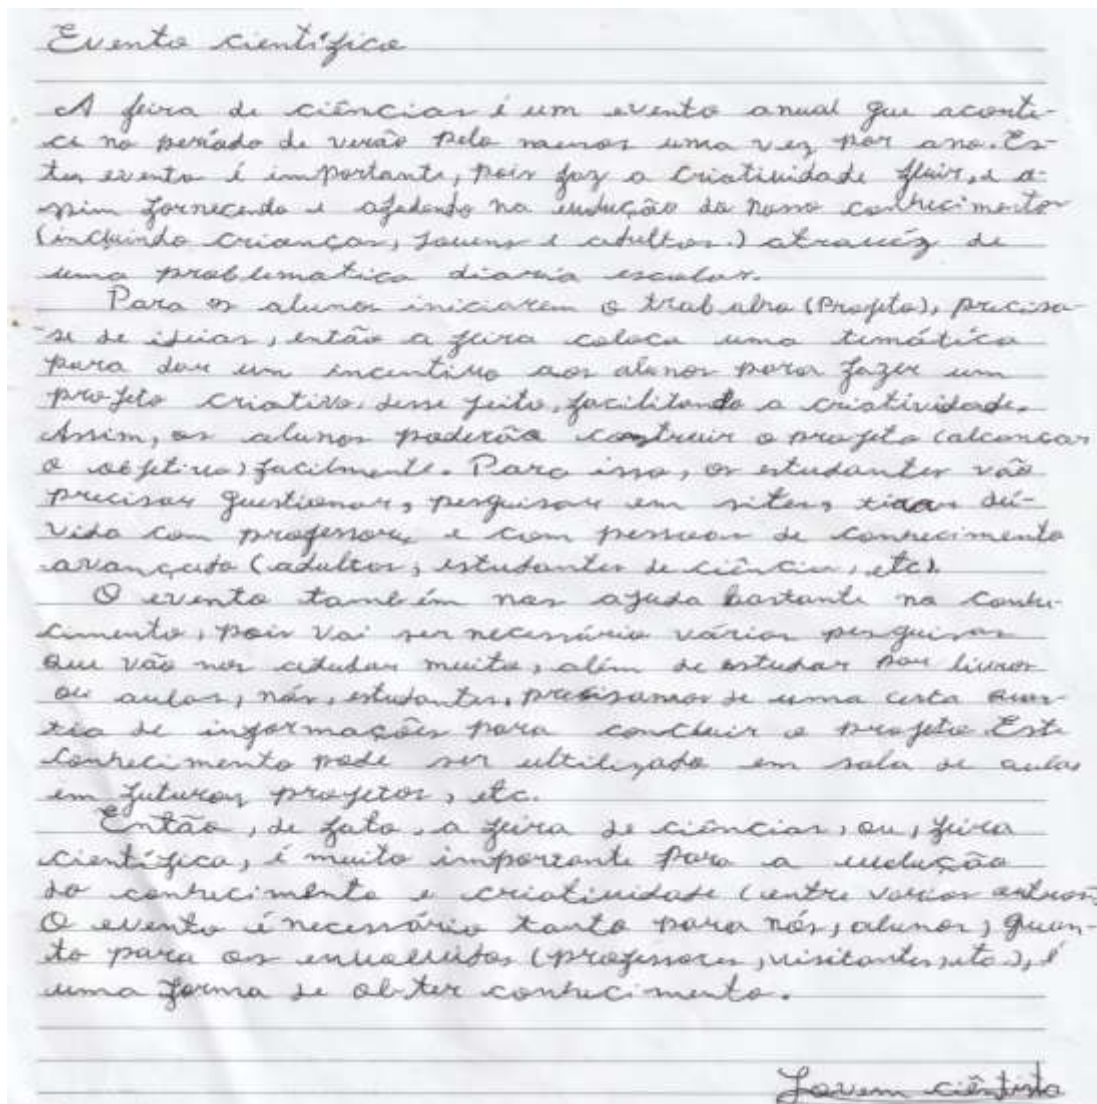 Evento científico
A feira de ciências é um evento anual que aconte-
ce no período de verão pelo menos uma vez por ano. Es-
tes evento é importante, pois faz a criatividade fluir, e a-
ssim fornecendo e ajudando na evolução do nosso conhecimento
(incluindo crianças, jovens e adultos) atravéz de
uma problematica diaria escolar.
Para os alunos iniciarem o trabalho (projeto), precisa-
se de ideias, então a feira coloca uma temática
para dar um incentivo aos alunos para fazer um
projeto criativo, desse jeito, facilitando a criatividade.
Assim, os alunos poderão construir o projeto (alcançar
o objetivo) facilmente. Para isso, os estudantes vão
precisar questionar, pesquisar em sites, tirar dú-
vida com professores e com pessoas de conhecimento
avançado (adultos, estudantes de ciências, etc).
O evento também nos ajuda bastante no conhe-
cimento, pois vai ser necessário vários pesquisas
que vão nos ajudar muito, além de estudar por livros
ou aulas, nós, estudantes, precisamos de uma certa quan-
tia de informações para concluir o projeto. Este
conhecimento pode ser ultilizado em sala de aulas
em futuros projetos, etc.
Então, de fato, a feira de ciências, ou, feira
científica, é muito importante para a evolução
do conhecimento e criatividade (entre varios outros).
O evento é necessário tanto para nós, alunos, quan-
to para os envolvidos (professores, visitantes, etc), é
uma forma de obter conhecimento.
Jovem ciêntista